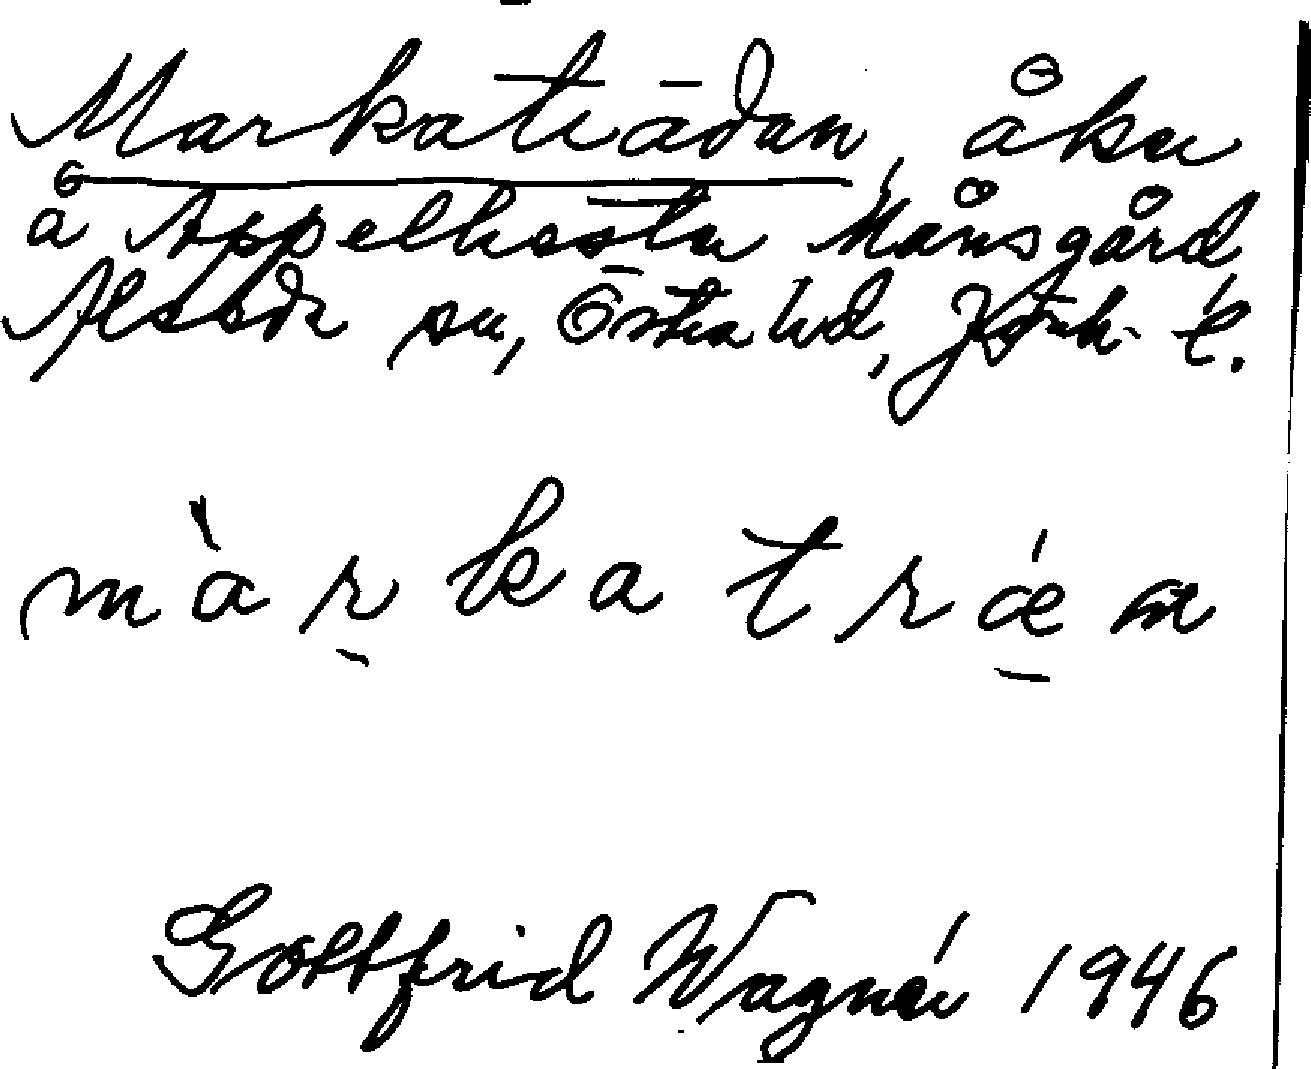 Markaträdan, åker
å Appelhester Månsgård,
Alseda sn, Östra hd, Jönk. l.
màrkatrǽn
Gottfrid Wagnér 1946